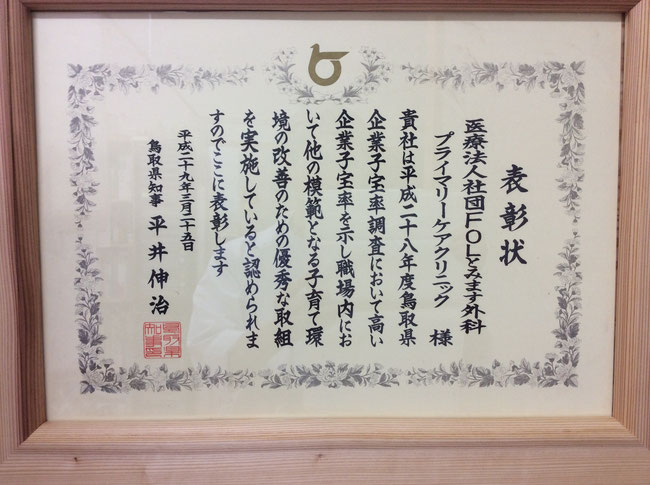 表彰状
医療法人社団FOLとみます外科
プライマリーケアクリニック 様
貴社は平成二十八年度鳥取県
企業子宝率調査において高い
企業子宝率を示し職場内にお
いて他の模範となる子育て環
境の改善のための優秀な取組
を実施していると認められま
すのでここに表彰します
平成二十九年三月二十五日
鳥取県知事 平井伸治